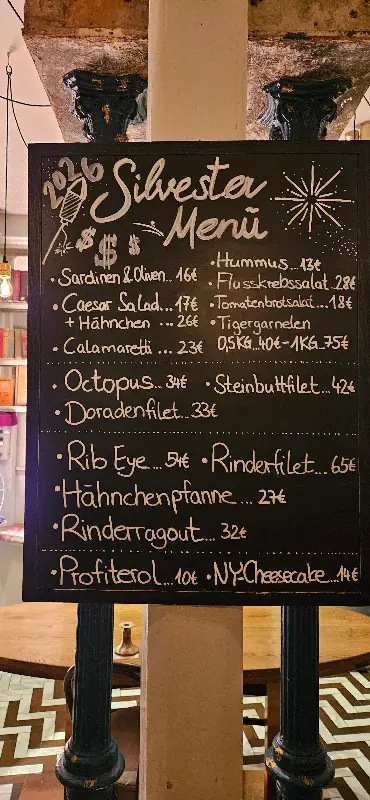 2026
Silvester
Menü
$ $ $
• Sardinen & Oliven... 16€
• Caesar Salad.... 17€
+ Hähnchen ... 26€
• Calamaretti ... 23€
• Hummus... 13€
• Flusskrebssalat. 28€
• Tomatenbrotsalat....18€
• Tigergarnelen
0,5KG...40€-1KG..75€
• Octopus... 34€ • Steinbuttfilet... 42€
• Doradenfilet... 33€
• Rib Eye... 54€ • Rinderfilet... 65€
• Hähnchenpfanne ... 27€
• Rinderragout... 32€
• Profiterol... 10€ • NY-Cheesecake...14€